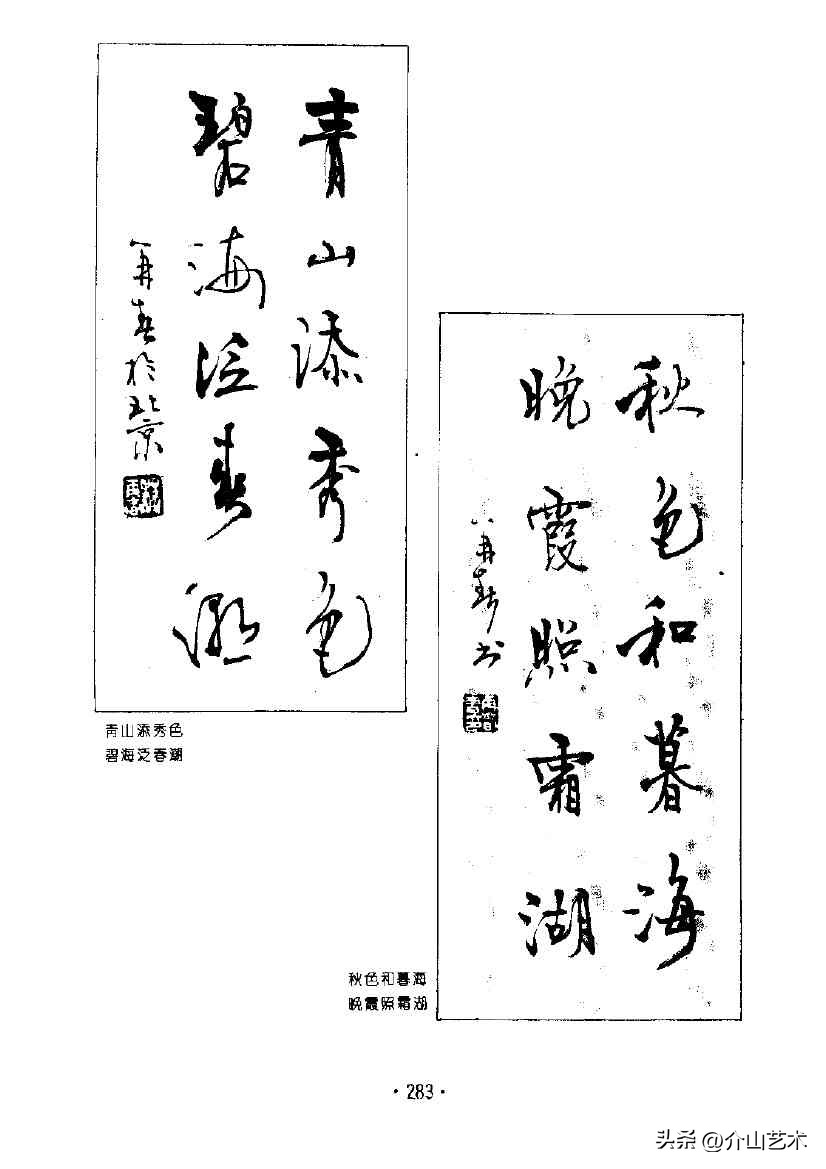 青山添秀色
碧海泛春潮
再春於北京
青山添秀色
碧海泛春潮
秋色和暮海
晚霞照霜湖
再春书
秋色和暮海
晚霞照霜湖
·283·
头条@介山艺术